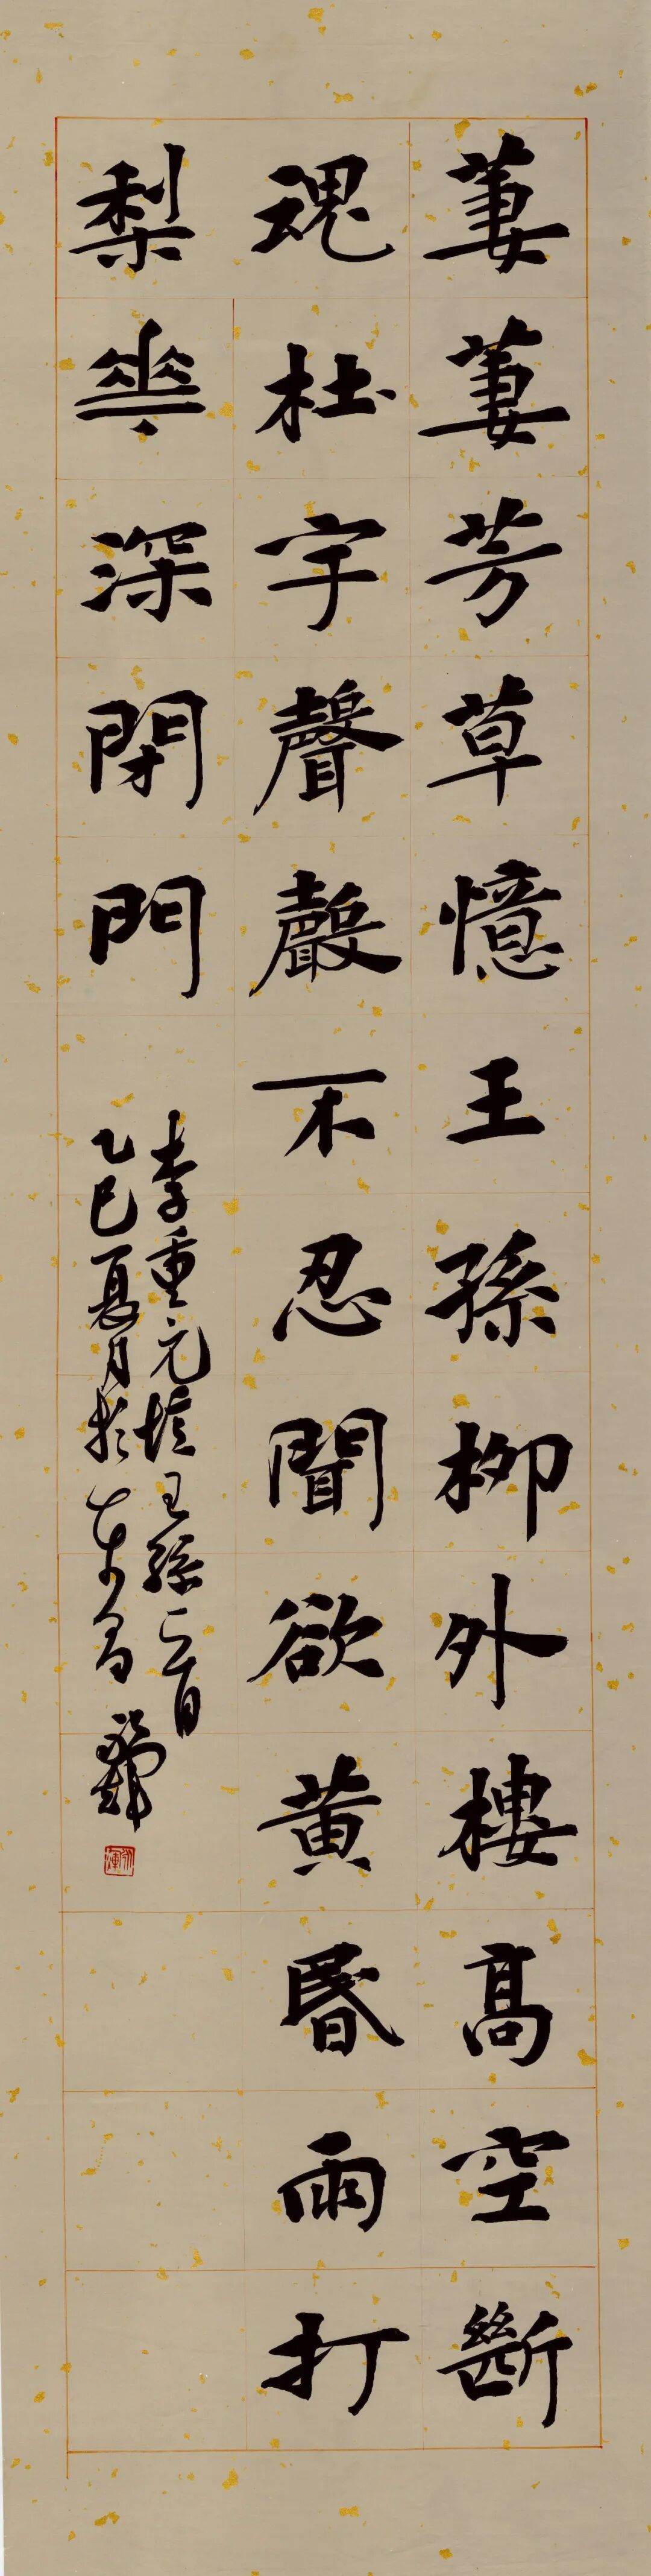 萋萋芳草憶王孫柳外樓高空斷
魂杜宇聲聲不忍聞欲黃昏雨打
梨華深閉門
李重元憶王孫一首
乙巳夏月於